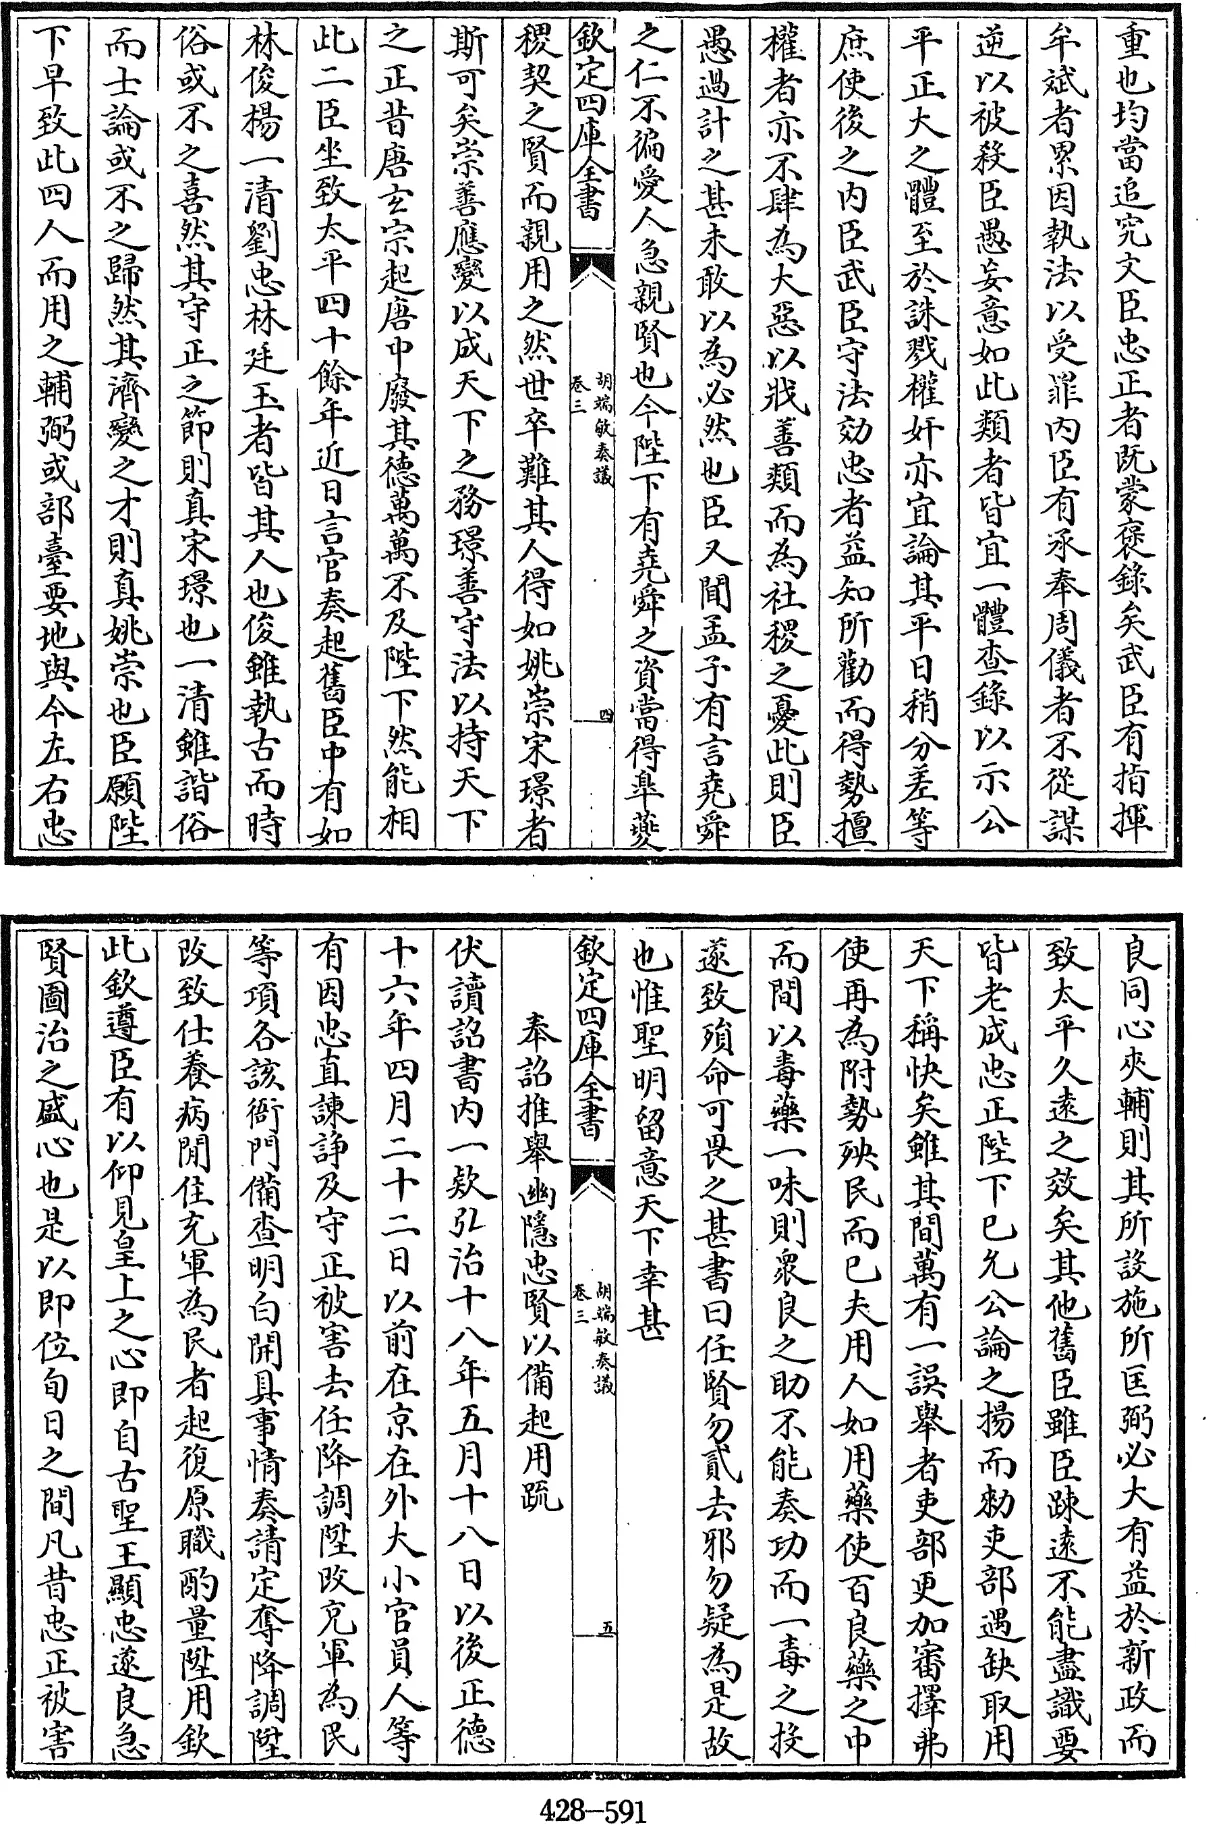 重也均當追究文臣忠正者既蒙褒錄矣武臣有指揮
牟斌者累因執法以受罪内臣有承奉周儀者不從謀
逆以被殺臣愚妄意如此類者皆宜一體查錄以示公
平正大之體至於誅戮權奸亦宜論其平日稍分差等
庶使後之内臣武臣守法效忠者益知所勸而得勢擅
權者亦不肆為大惡以戕善類而為社稷之憂此則臣
愚過計之甚未敢以為必然也臣又聞孟子有言堯舜
之仁不徧愛人急親賢也今陛下有堯舜之資當得臯夔
欽定四庫全書
胡端敏奏議
卷三
四
稷契之賢而親用之然世卒難其人得如姚崇宋璟者
斯可矣崇善應變以成天下之務璟善守法以持天下
之正昔唐玄宗起唐中廢其德萬萬不及陛下然能相
此二臣坐致太平四十餘年近日言官奏起舊臣中有如
林俊楊一清劉忠林廷玉者皆其人也俊雖執古而時
俗或不之喜然其守正之節則真宋璟也一清雖諧俗
而士論或不之歸然其濟變之才則真姚崇也臣願陛
下早致此四人而用之輔弼或部臺要地與今左右忠
良同心夾輔則其所設施所匡弼必大有益於新政而
致太平久遠之效矣其他舊臣雖臣踈遠不能盡識要
皆老成忠正陛下已允公論之揚而勑吏部遇缺取用
天下稱快矣雖其間萬有一誤舉者吏部更加審擇弗
使再為附勢殃民而已夫用人如用藥使百良藥之中
而間以毒藥一味則衆良之助不能奏功而一毒之投
遂致殞命可畏之甚書曰任賢勿貳去邪勿疑為是故
也惟聖明留意天下幸甚
欽定四庫全書
胡端敏奏議
卷三
五
奉詔推舉幽隱忠賢以備起用疏
伏讀詔書内一欵弘治十八年五月十八日以後正德
十六年四月二十二日以前在京在外大小官員人等
有因忠直諫諍及守正被害去任降調陞改充軍為民
等項各該衙門備查明白開具事情奏請定奪降調陞
改致仕養病閒住充軍為民者起復原職酌量陞用欽
此欽遵臣有以仰見皇上之心即自古聖王顯忠遂良急
賢圖治之盛心也是以即位旬日之間凡昔忠正被害
428-591